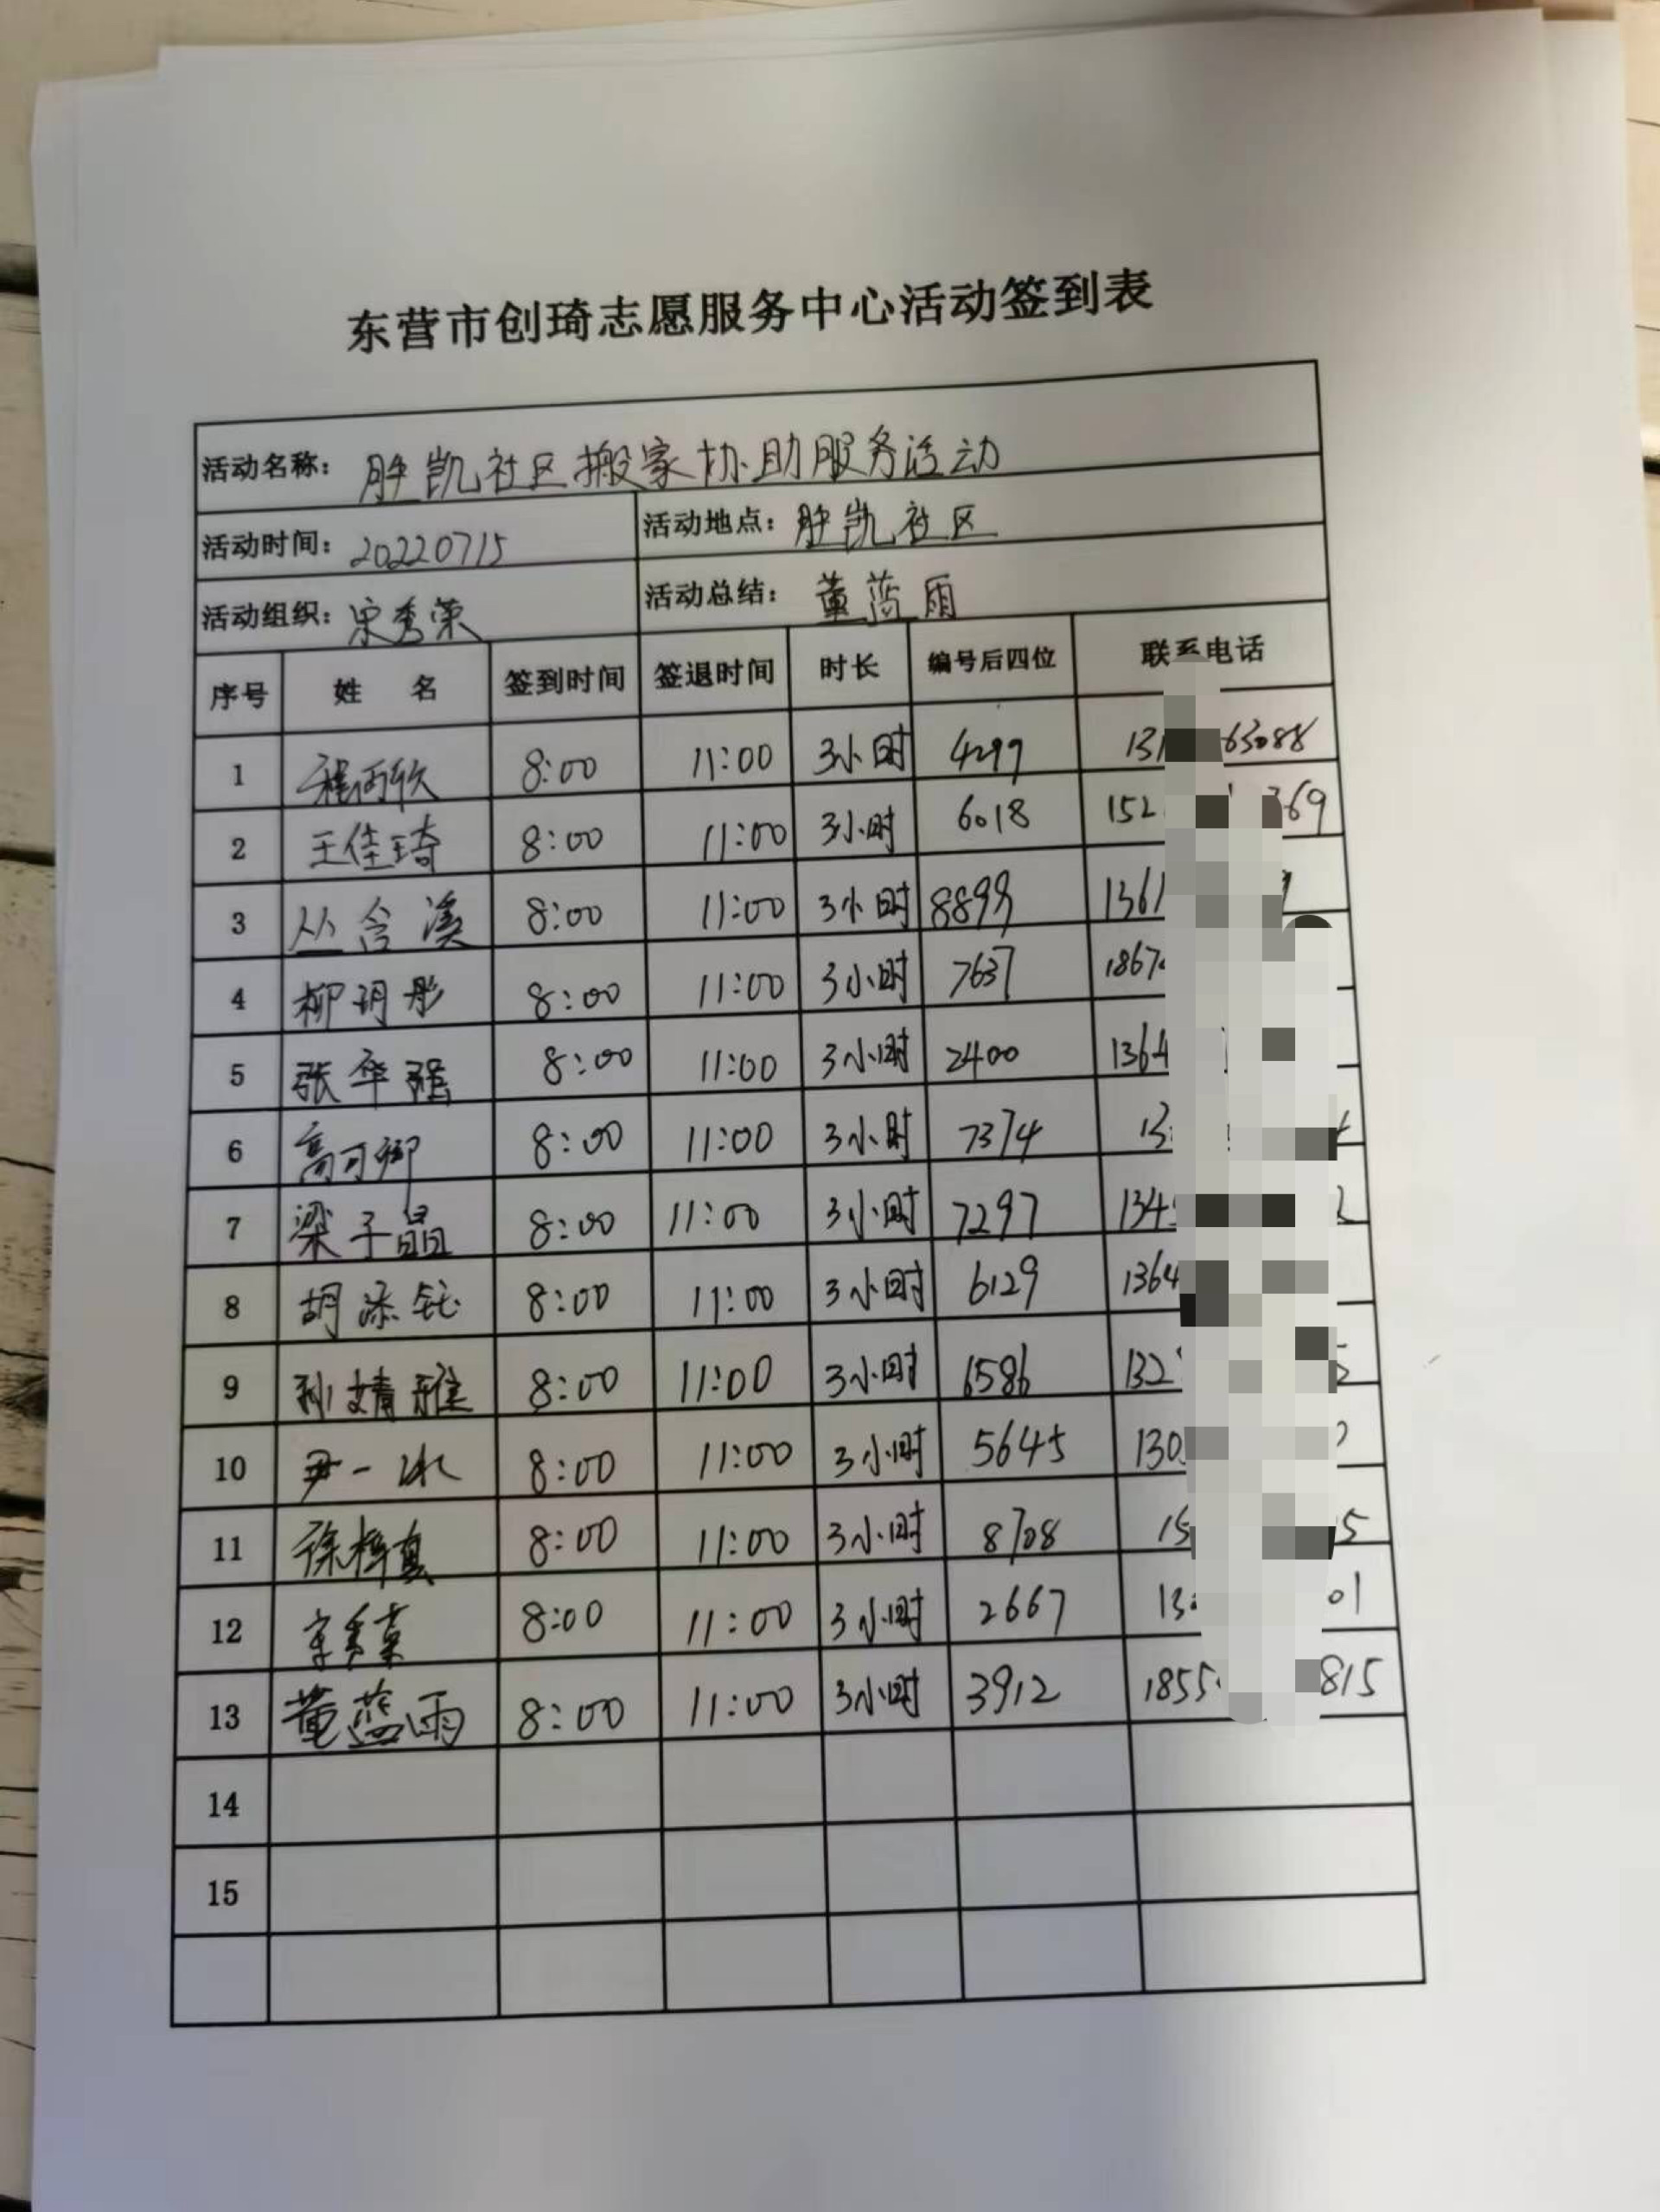 东营市创琦志愿服务中心活动签到表
活动名称: 胜凯社区搬家协助服务活动
活动时间: 20220715 活动地点: 胜凯社区
活动组织: 宋秀荣 活动总结: 董蓝雨
序号 姓 名 签到时间 签退时间 时长 编号后四位 联系电话
1 8:00 11:00 3小时 4299 131 63088
2 王佳琦 8:00 11:00 3小时 6018 152 369
3 丛含溪 8:00 11:00 3小时 8899 1361
4 柳玥彤 8:00 11:00 3小时 7637 1867
5 张华强 8:00 11:00 3小时 2400 1364
6 高可卿 8:00 11:00 3小时 7374 13
7 梁子晶 8:00 11:00 3小时 7297 134 2
8 胡添钰 8:00 11:00 3小时 6129 1364
9 孙婧雅 8:00 11:00 3小时 6586 132
10 尹一冰 8:00 11:00 3小时 5645 130
11 徐梓真 8:00 11:00 3小时 8708 15 5
12 宋秀荣 8:00 11:00 3小时 2667 13 01
13 董蓝雨 8:00 11:00 3小时 3912 1855 815
14
15